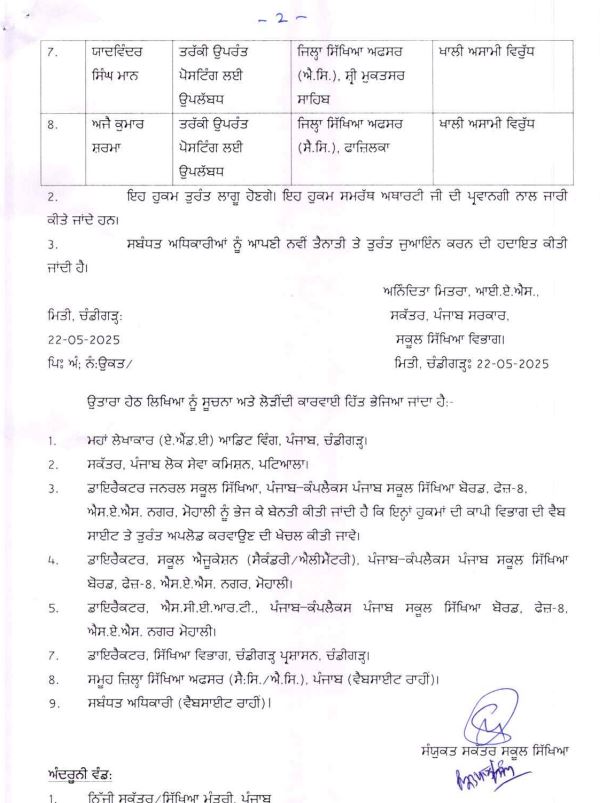 - 2 -
7. ਯਾਦਵਿੰਦਰ ਸਿੰਘ ਮਾਨ ਤਰੱਕੀ ਉਪਰੰਤ ਪੋਸਟਿੰਗ ਲਈ ਉਪਲੱਬਧ ਜਿਲ੍ਹਾ ਸਿੱਖਿਆ ਅਫਸਰ (ਐ.ਸਿ.), ਸ਼੍ਰੀ ਮੁਕਤਸਰ ਸਾਹਿਬ ਖਾਲੀ ਅਸਾਮੀ ਵਿਰੁੱਧ
8. ਅਜੈ ਕੁਮਾਰ ਸ਼ਰਮਾ ਤਰੱਕੀ ਉਪਰੰਤ ਪੋਸਟਿੰਗ ਲਈ ਉਪਲੱਬਧ ਜਿਲ੍ਹਾ ਸਿੱਖਿਆ ਅਫਸਰ (ਸੈ.ਸਿ.), ਫਾਜ਼ਿਲਕਾ ਖਾਲੀ ਅਸਾਮੀ ਵਿਰੁੱਧ
2. ਇਹ ਹੁਕਮ ਤੁਰੰਤ ਲਾਗੂ ਹੋਣਗੇ। ਇਹ ਹੁਕਮ ਸਮਰੱਥ ਅਥਾਰਟੀ ਜੀ ਦੀ ਪ੍ਰਵਾਨਗੀ ਨਾਲ ਜਾਰੀ
ਕੀਤੇ ਜਾਂਦੇ ਹਨ।
3. ਸਬੰਧਤ ਅਧਿਕਾਰੀਆਂ ਨੂੰ ਆਪਣੀ ਨਵੀਂ ਤੈਨਾਤੀ ਤੇ ਤੁਰੰਤ ਜੁਆਇੰਨ ਕਰਨ ਦੀ ਹਦਾਇਤ ਕੀਤੀ
ਜਾਂਦੀ ਹੈ।
ਅਨਿੰਦਿਤਾ ਮਿਤਰਾ, ਆਈ.ਏ.ਐਸ.,
ਮਿਤੀ, ਚੰਡੀਗੜ੍ਹ: ਸਕੱਤਰ, ਪੰਜਾਬ ਸਰਕਾਰ,
22-05-2025 ਸਕੂਲ ਸਿੱਖਿਆ ਵਿਭਾਗ।
ਪਿਃ ਅੰ; ਨੰ:ਉਕਤ/ ਮਿਤੀ, ਚੰਡੀਗੜ੍ਹਃ 22-05-2025
ਉਤਾਰਾ ਹੇਠ ਲਿਖਿਆ ਨੂੰ ਸੂਚਨਾ ਅਤੇ ਲੋੜੀਂਦੀ ਕਾਰਵਾਈ ਹਿੱਤ ਭੇਜਿਆ ਜਾਂਦਾ ਹੈ:-
1. ਮਹਾਂ ਲੇਖਾਕਾਰ (ਏ.ਐਂਡ.ਈ) ਆਡਿਟ ਵਿੰਗ, ਪੰਜਾਬ, ਚੰਡੀਗੜ੍ਹ।
2. ਸਕੱਤਰ, ਪੰਜਾਬ ਲੋਕ ਸੇਵਾ ਕਮਿਸ਼ਨ, ਪਟਿਆਲਾ।
3. ਡਾਇਰੈਕਟਰ ਜਨਰਲ ਸਕੂਲ ਸਿੱਖਿਆ, ਪੰਜਾਬ-ਕੰਪਲੈਕਸ ਪੰਜਾਬ ਸਕੂਲ ਸਿੱਖਿਆ ਬੋਰਡ, ਫੇਜ਼-8,
ਐਸ.ਏ.ਐਸ. ਨਗਰ, ਮੋਹਾਲੀ ਨੂੰ ਭੇਜ ਕੇ ਬੇਨਤੀ ਕੀਤੀ ਜਾਂਦੀ ਹੈ ਕਿ ਇਨ੍ਹਾਂ ਹੁਕਮਾਂ ਦੀ ਕਾਪੀ ਵਿਭਾਗ ਦੀ ਵੈਬ
ਸਾਈਟ ਤੇ ਤੁਰੰਤ ਅਪਲੋਡ ਕਰਵਾਉਣ ਦੀ ਖੇਚਲ ਕੀਤੀ ਜਾਵੇ।
4. ਡਾਇਰੈਕਟਰ, ਸਕੂਲ ਐਜੂਕੇਸ਼ਨ (ਸੈਕੰਡਰੀ/ਐਲੀਮੈਂਟਰੀ), ਪੰਜਾਬ-ਕੰਪਲੈਕਸ ਪੰਜਾਬ ਸਕੂਲ ਸਿੱਖਿਆ
ਬੋਰਡ, ਫੇਜ਼-8, ਐਸ.ਏ.ਐਸ. ਨਗਰ, ਮੋਹਾਲੀ।
5. ਡਾਇਰੈਕਟਰ, ਐਸ.ਸੀ.ਈ.ਆਰ.ਟੀ., ਪੰਜਾਬ-ਕੰਪਲੈਕਸ ਪੰਜਾਬ ਸਕੂਲ ਸਿੱਖਿਆ ਬੋਰਡ, ਫੇਜ਼-8,
ਐਸ.ਏ.ਐਸ. ਨਗਰ ਮੋਹਾਲੀ।
7. ਡਾਇਰੈਕਟਰ, ਸਿੱਖਿਆ ਵਿਭਾਗ, ਚੰਡੀਗੜ੍ਹ ਪ੍ਰਸ਼ਾਸਨ, ਚੰਡੀਗੜ੍ਹ।
8. ਸਮੂਹ ਜ਼ਿਲ੍ਹਾ ਸਿੱਖਿਆ ਅਫਸਰ (ਸੈ:ਸਿ./ਐ.ਸਿ.), ਪੰਜਾਬ (ਵੈਬਸਾਈਟ ਰਾਹੀਂ)।
9. ਸਬੰਧਤ ਅਧਿਕਾਰੀ (ਵੈਬਸਾਈਟ ਰਾਹੀਂ)।
ਸੰਯੁਕਤ ਸਕੱਤਰ ਸਕੂਲ ਸਿੱਖਿਆ
ਅੰਦਰੂਨੀ ਵੰਡ:
1. ਨਿੱਜੀ ਸਕੱਤਰ/ਸਿੱਖਿਆ ਮੰਤਰੀ, ਪੰਜਾਬ